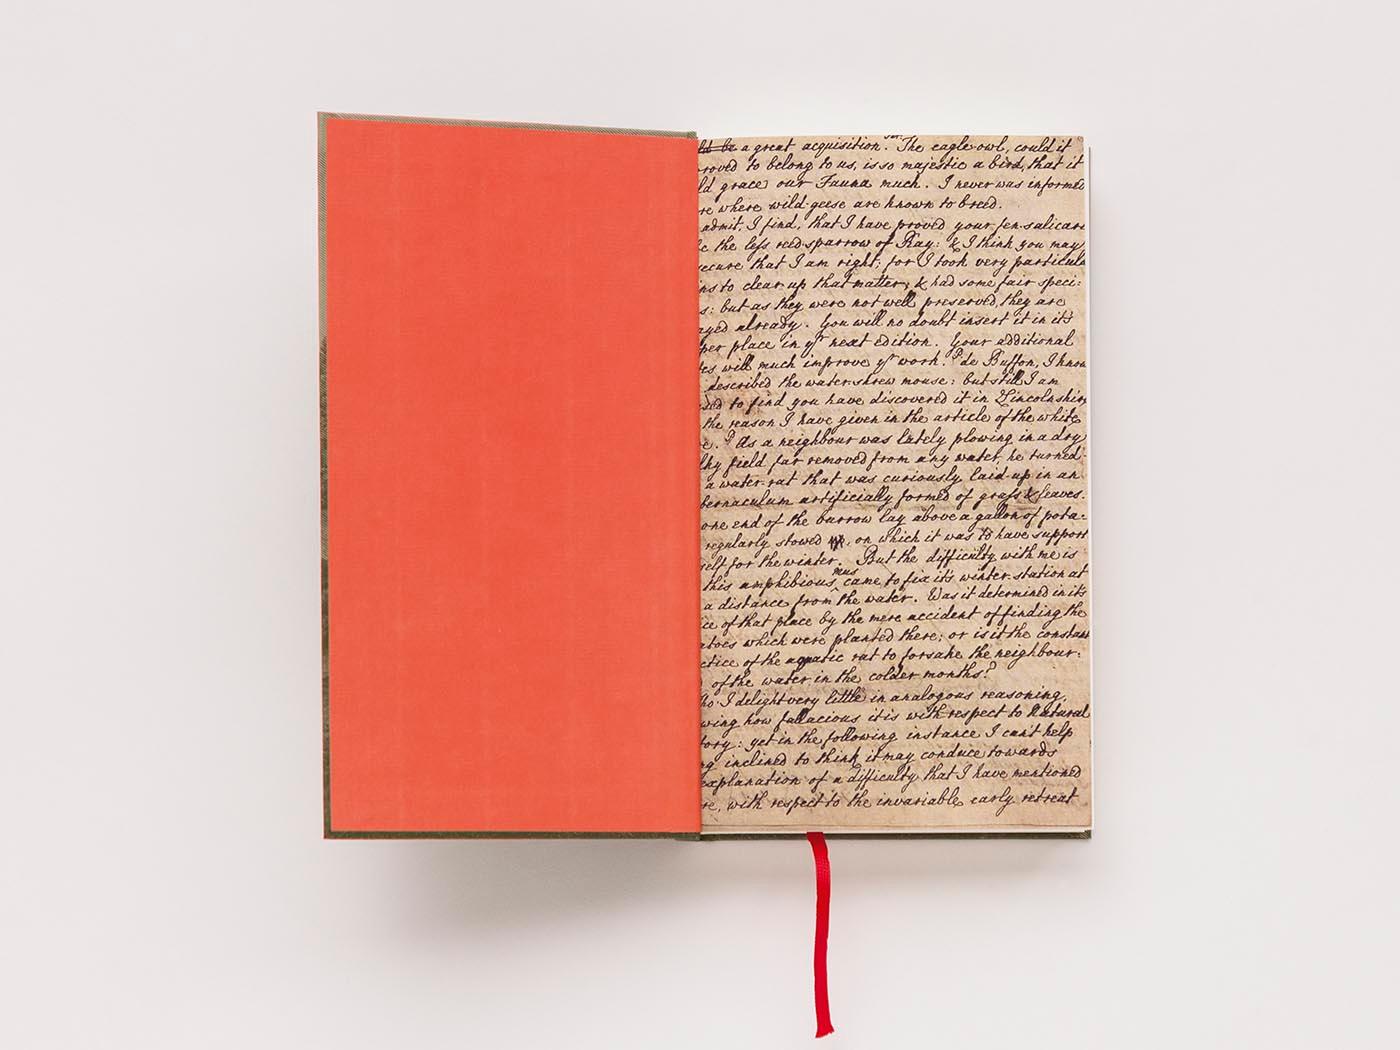 ld be a great acquisition. The eagle-owl, could it
roved to belong to us, is so majestic a bird, that it
ld grace our Fauna much. I never was informed
re where wild-geese are known to breed.
admit, I find, that I have proved your fen-salicari
c the less reed-sparrow of Ray: & I think you may
secure that I am right; for I took very particula
ns to clear up that matter, & had some fair speci:
s: but as they were not well preserved, they are
ayed already. You will no doubt insert it in it's
per place in yr next edition. Your additional
tes will much improve yr work. de Buffon, I know
described the water-shrew mouse: but still I am
sed to find you have discovered it in Lincolnshire
the reason I have given in the article of the white
e. As a neighbour was lately plowing in a dry
lky field far removed from any water, he turned
a water-rat that was curiously laid-up in an
bernaculum artificially formed of grass & leaves.
one end of the burrow lay above a gallon of pota:
regularly stowed, on which it was to have support
self for the winter. But the difficulty with me is
this amphibious mus came to fix it's winter-station at
a distance from the water. Was it determined in it's
ce of that place by the mere accident of finding the
atoes which were planted there; or is it the constant
ctice of the aquatic rat to forsake the neighbour:
of the water in the colder months?
ho' I delight very little in analogous reasoning,
wing how fallacious it is with respect to Natural
tory: yet in the following instance I can't help
ng inclined to think it may conduce towards
explanation of a difficulty that I have mentioned
re, with respect to the invariable early retreat